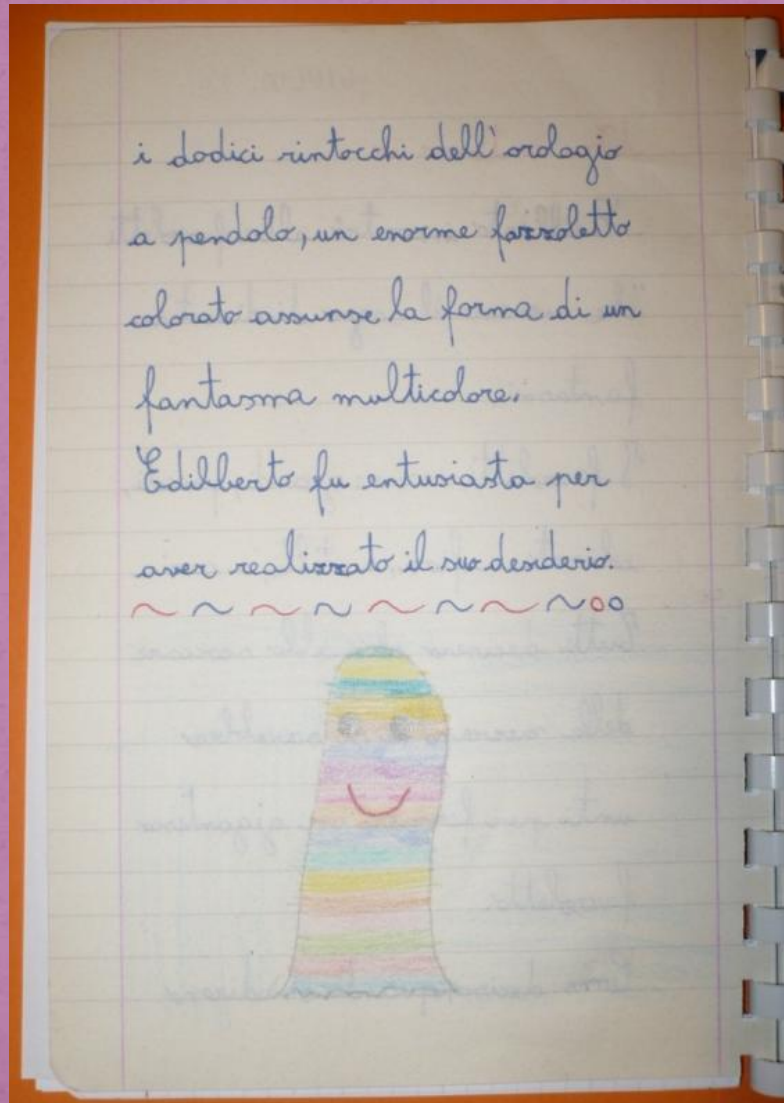 i dodici rintocchi dell'orologio
a pendolo, un enorme fazzoletto
colorato assunse la forma di un
fantasma multicolore.
Edilberto fu entusiasta per
aver realizzato il suo desiderio.